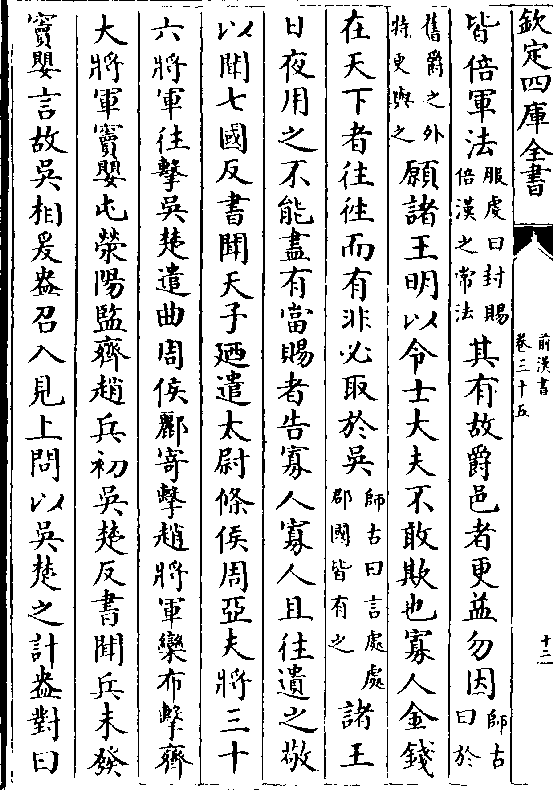 欽定四庫全書
前漢書
卷三十五
十三
皆倍軍法服䖍曰封賜倍漢之常法其有故爵邑者更益勿因師古曰於
舊爵之外特更與之願諸王明以令士大夫不敢欺也寡人金錢
在天下者往往而有非必取於吳師古曰言處處郡國皆有之諸王
日夜用之不能盡有當賜者告寡人寡人且往遺之敬
以聞七國反書聞天子廼遣太尉條侯周亞夫將三十
六將軍往擊吳楚遣曲周侯酈寄擊趙將軍欒布擊齊
大將軍竇嬰屯滎陽監齊趙兵初吳楚反書聞兵未發
竇嬰言故吳相爰盎召入見上問以吳楚之計盎對曰